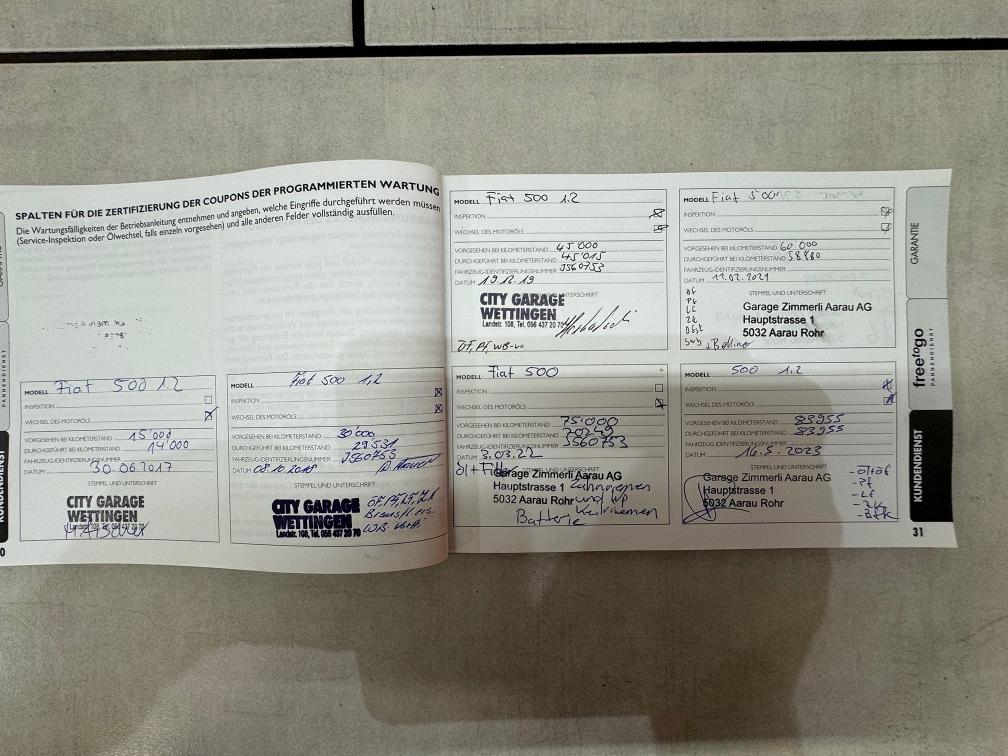 SPALTEN FÜR DIE ZERTIFIZIERUNG DER COUPONS DER PROGRAMMIERTEN WARTUNG
Die Wartungsfälligkeiten der Betriebsanleitung entnehmen und angeben, welche Eingriffe durchgeführt werden müssen
(Service-Inspektion oder Ölwechsel, falls einzeln vorgesehen) und alle anderen Felder vollständig ausfüllen.
MODELL Fiat 500 1.2
INSPEKTION
WECHSEL DES MOTORÖLS
VORGESEHEN BEI KILOMETERSTAND 15'000
DURCHGEFÜHRT BEI KILOMETERSTAND 14'000
FAHRZEUG-IDENTIFIZIERUNGSNUMMER
DATUM 30.06.2017
STEMPEL UND UNTERSCHRIFT
CITY GARAGE
WETTINGEN
MODELL Fiat 500 1,2
INSPEKTION
WECHSEL DES MOTORÖLS
VORGESEHEN BEI KILOMETERSTAND 30'000
DURCHGEFÜHRT BEI KILOMETERSTAND 29531
FAHRZEUG-IDENTIFIZIERUNGSNUMMER J560753
DATUM 08.10.2018
STEMPEL UND UNTERSCHRIFT
CITY GARAGE
WETTINGEN
Landstr. 108, Tel. 056 437 20 70
MODELL Fiat 500 1.2
INSPEKTION
WECHSEL DES MOTORÖLS
VORGESEHEN BEI KILOMETERSTAND 45'000
DURCHGEFÜHRT BEI KILOMETERSTAND 45'015
FAHRZEUG-IDENTIFIZIERUNGSNUMMER J560753
DATUM 19.12.19
CITY GARAGE
WETTINGEN
Landstr. 108, Tel. 056 437 20 70
ÖF, PF, WB-vo
MODELL Fiat 500
INSPEKTION
WECHSEL DES MOTORÖLS
VORGESEHEN BEI KILOMETERSTAND 60'000
DURCHGEFÜHRT BEI KILOMETERSTAND 58980
FAHRZEUG-IDENTIFIZIERUNGSNUMMER
DATUM 11.02.2021
STEMPEL UND UNTERSCHRIFT
Garage Zimmerli Aarau AG
Hauptstrasse 1
5032 Aarau Rohr
MODELL Fiat 500
INSPEKTION
WECHSEL DES MOTORÖLS
VORGESEHEN BEI KILOMETERSTAND 75'000
DURCHGEFÜHRT BEI KILOMETERSTAND 70249
FAHRZEUG-IDENTIFIZIERUNGSNUMMER J560753
DATUM 3.03.22
öl + Filter
STEMPEL UND UNTERSCHRIFT
Garage Zimmerli Aarau AG
Hauptstrasse 1 Zahnriemen
5032 Aarau Rohr und Wp
Batterie Keilriemen
MODELL 500 1.2
INSPEKTION
WECHSEL DES MOTORÖLS
VORGESEHEN BEI KILOMETERSTAND 83955
DURCHGEFÜHRT BEI KILOMETERSTAND 83955
FAHRZEUG-IDENTIFIZIERUNGSNUMMER
DATUM 16.5.2023
STEMPEL UND UNTERSCHRIFT
Garage Zimmerli Aarau AG
Hauptstrasse 1
5032 Aarau Rohr
- Öl+öf
- Pf
- Lf
GARANTIE
freetogo
PANNENDIENST
KUNDENDIENST
31